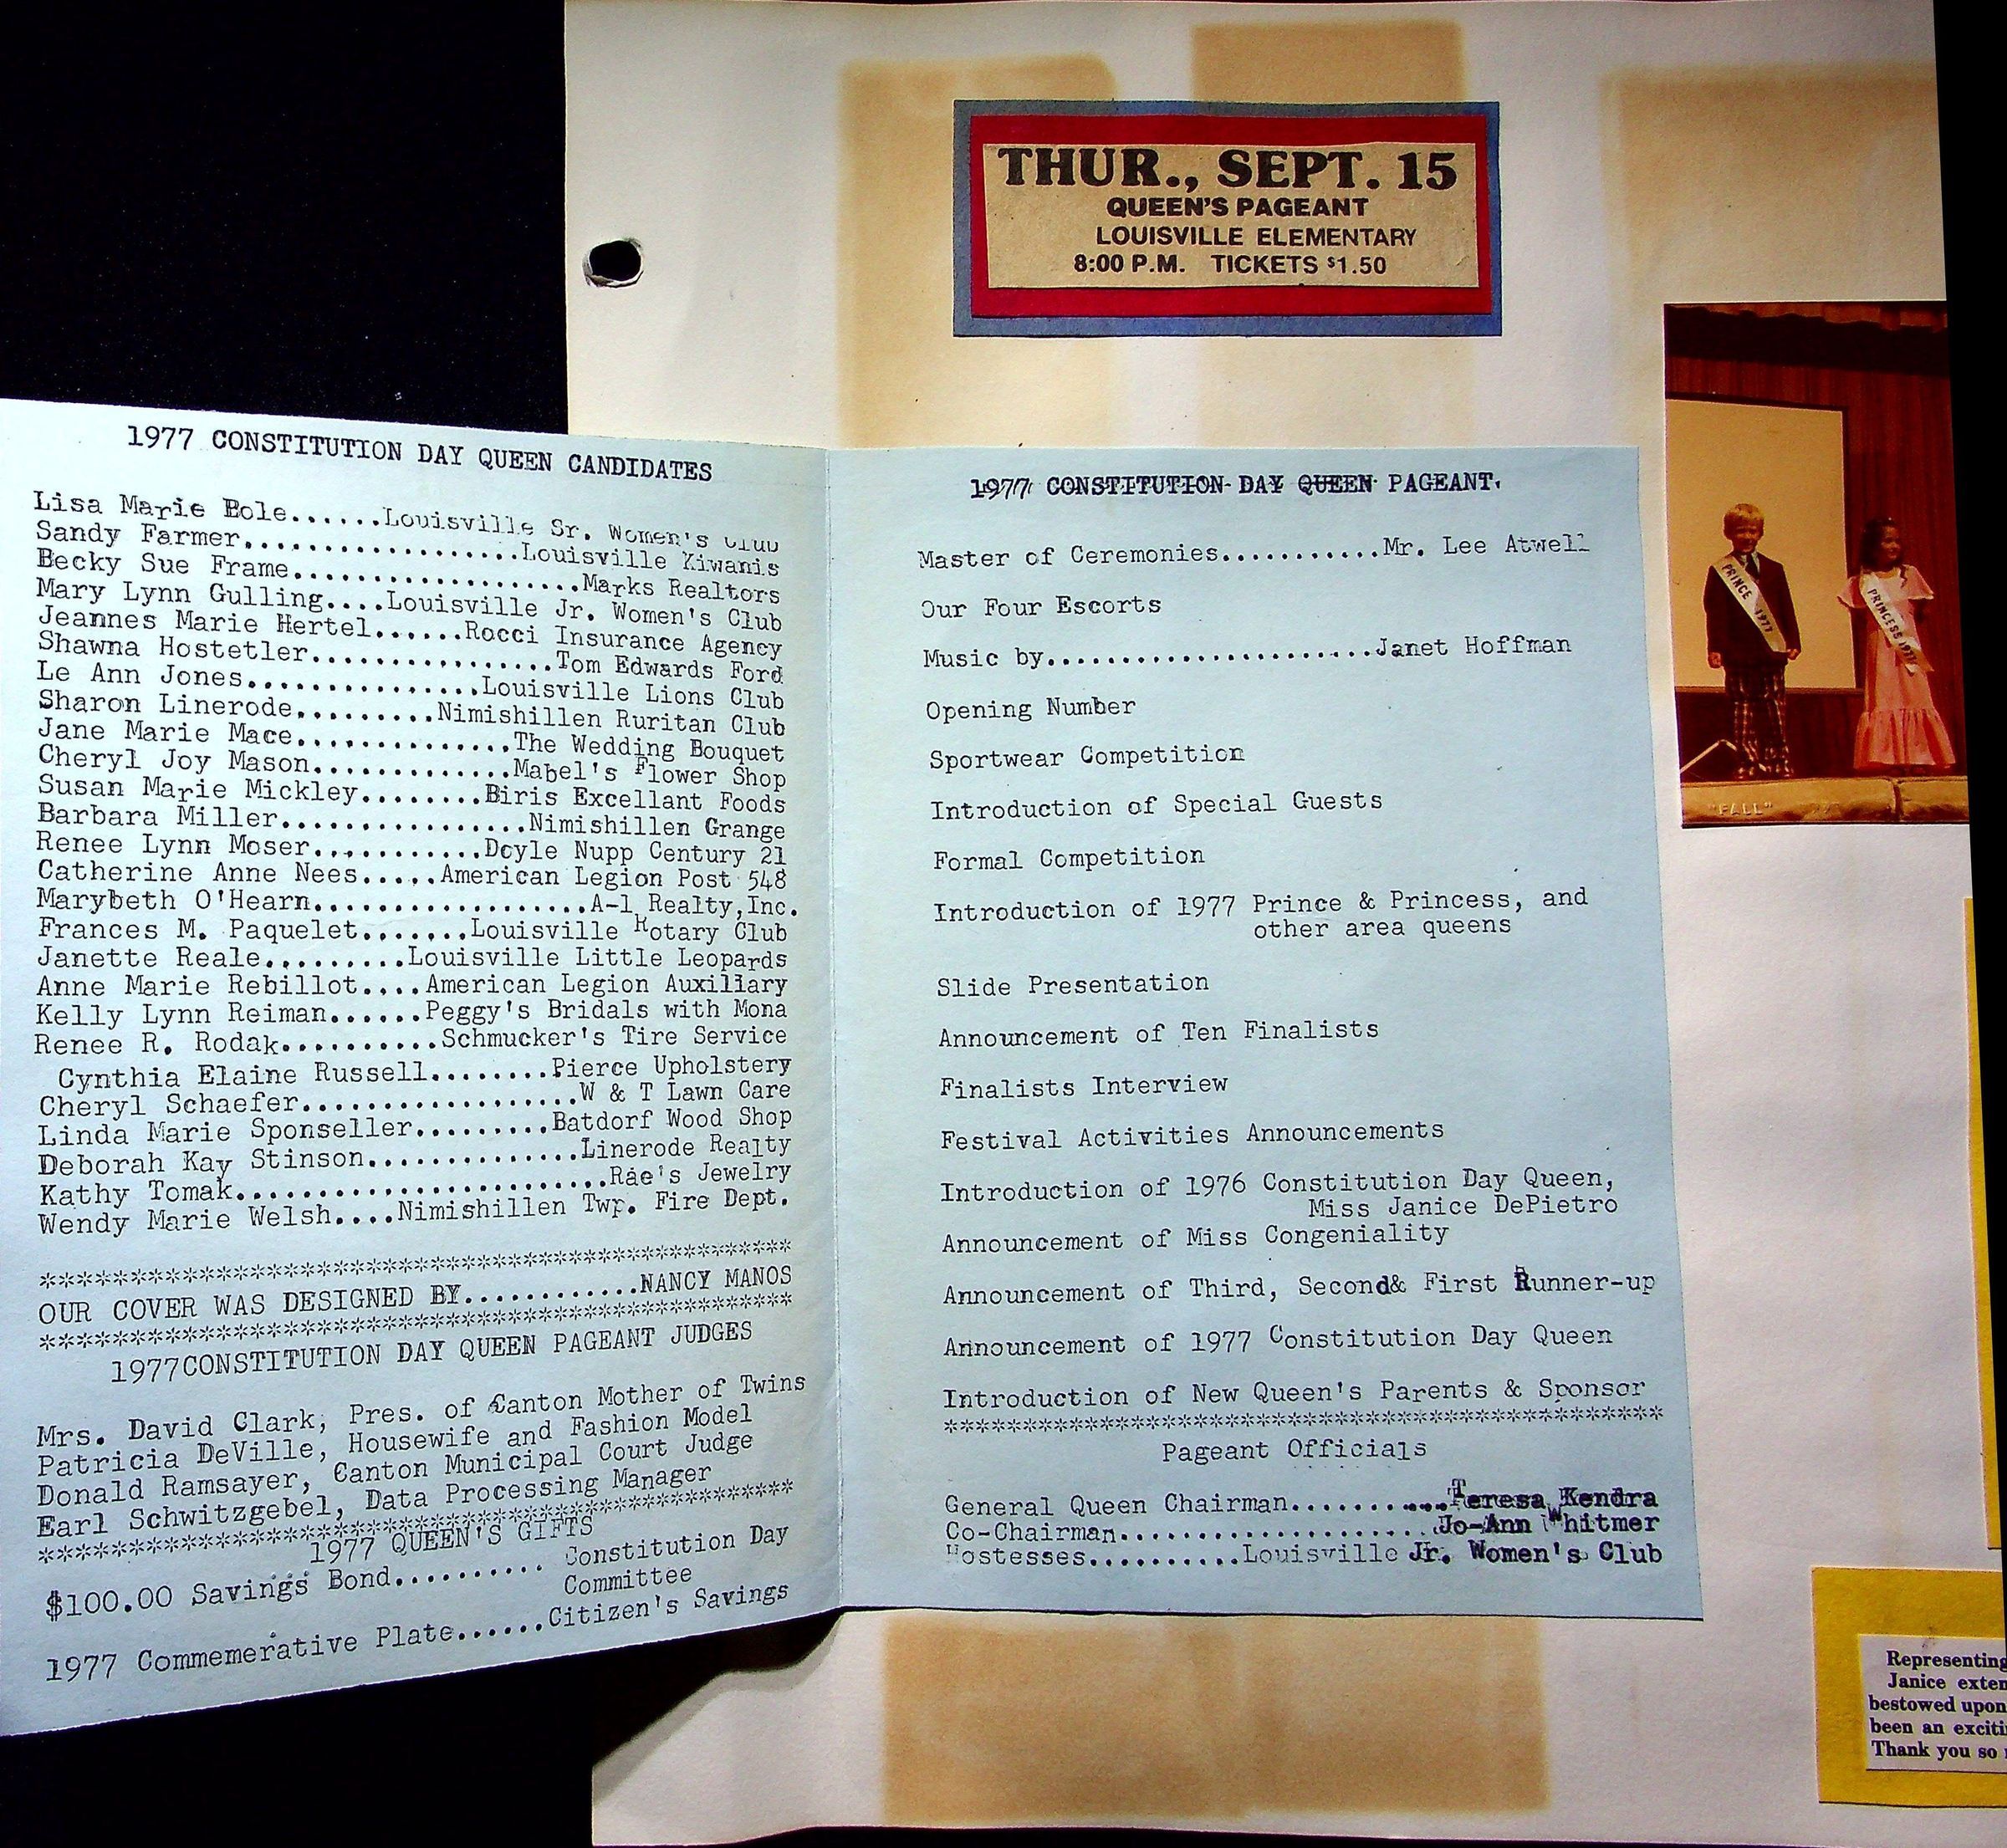 THUR., SEPT. 15
QUEEN'S PAGEANT
LOUISVILLE ELEMENTARY
8:00 P.M. TICKETS $1.50
1977 CONSTITUTION DAY QUEEN CANDIDATES
Lisa Marie Bole......Louisville Sr. Women's Club
Sandy Farmer..................Louisville Kiwanis
Becky Sue Frame...................Marks Realtors
Mary Lynn Gulling....Louisville Jr. Women's Club
Jeannes Marie Hertel......Rocci Insurance Agency
Shawna Hostetler................Tom Edwards Ford
Le Ann Jones...............Louisville Lions Club
Sharon Linerode.........Nimishillen Ruritan Club
Jane Marie Mace..............The Wedding Bouquet
Cheryl Joy Mason.............Mabel's Flower Shop
Susan Marie Mickley........Biris Excellant Foods
Barbara Miller................Nimishillen Grange
Renee Lynn Moser...........Doyle Nupp Century 21
Catherine Anne Nees.....American Legion Post 548
Marybeth O'Hearn..................A-1 Realty,Inc.
Frances M. Paquelet.......Louisville Rotary Club
Janette Reale.........Louisville Little Leopards
Anne Marie Rebillot....American Legion Auxiliary
Kelly Lynn Reiman......Peggy's Bridals with Mona
Renee R. Rodak..........Schmucker's Tire Service
Cynthia Elaine Russell........Pierce Upholstery
Cheryl Schaefer..................W & T Lawn Care
Linda Marie Sponseller.........Batdorf Wood Shop
Deborah Kay Stinson..............Linerode Realty
Kathy Tomak.........................Rae's Jewelry
Wendy Marie Welsh....Nimishillen Twp. Fire Dept.
*************************************************
OUR COVER WAS DESIGNED BY............NANCY MANOS
*************************************************
1977CONSTITUTION DAY QUEEN PAGEANT JUDGES
Mrs. David Clark, Pres. of Canton Mother of Twins
Patricia DeVille, Housewife and Fashion Model
Donald Ramsayer, Canton Municipal Court Judge
Earl Schwitzgebel, Data Processing Manager
*************************************************
1977 QUEEN'S GIFTS
$100.00 Savings Bond.......... Constitution Day
Committee
1977 Commemerative Plate......Citizen's Savings
1977 CONSTITUTION DAY QUEEN PAGEANT
Master of Ceremonies...........Mr. Lee Atwell
Our Four Escorts
Music by.......................Janet Hoffman
Opening Number
Sportwear Competition
Introduction of Special Guests
Formal Competition
Introduction of 1977 Prince & Princess, and
other area queens
Slide Presentation
Announcement of Ten Finalists
Finalists Interview
Festival Activities Announcements
Introduction of 1976 Constitution Day Queen,
Miss Janice DePietro
Announcement of Miss Congeniality
Announcement of Third, Second& First Runner-up
Announcement of 1977 Constitution Day Queen
Introduction of New Queen's Parents & Sponsor
***********************************************
Pageant Officials
General Queen Chairman...........Teresa Kendra
Co-Chairman.....................Jo-Ann Whitmer
Hostesses..........Louisville Jr. Women's Club
PRINCE 1977
PRINCESS 1977
"FALL"
Representing
Janice exten
bestowed upon
been an exciti
Thank you so